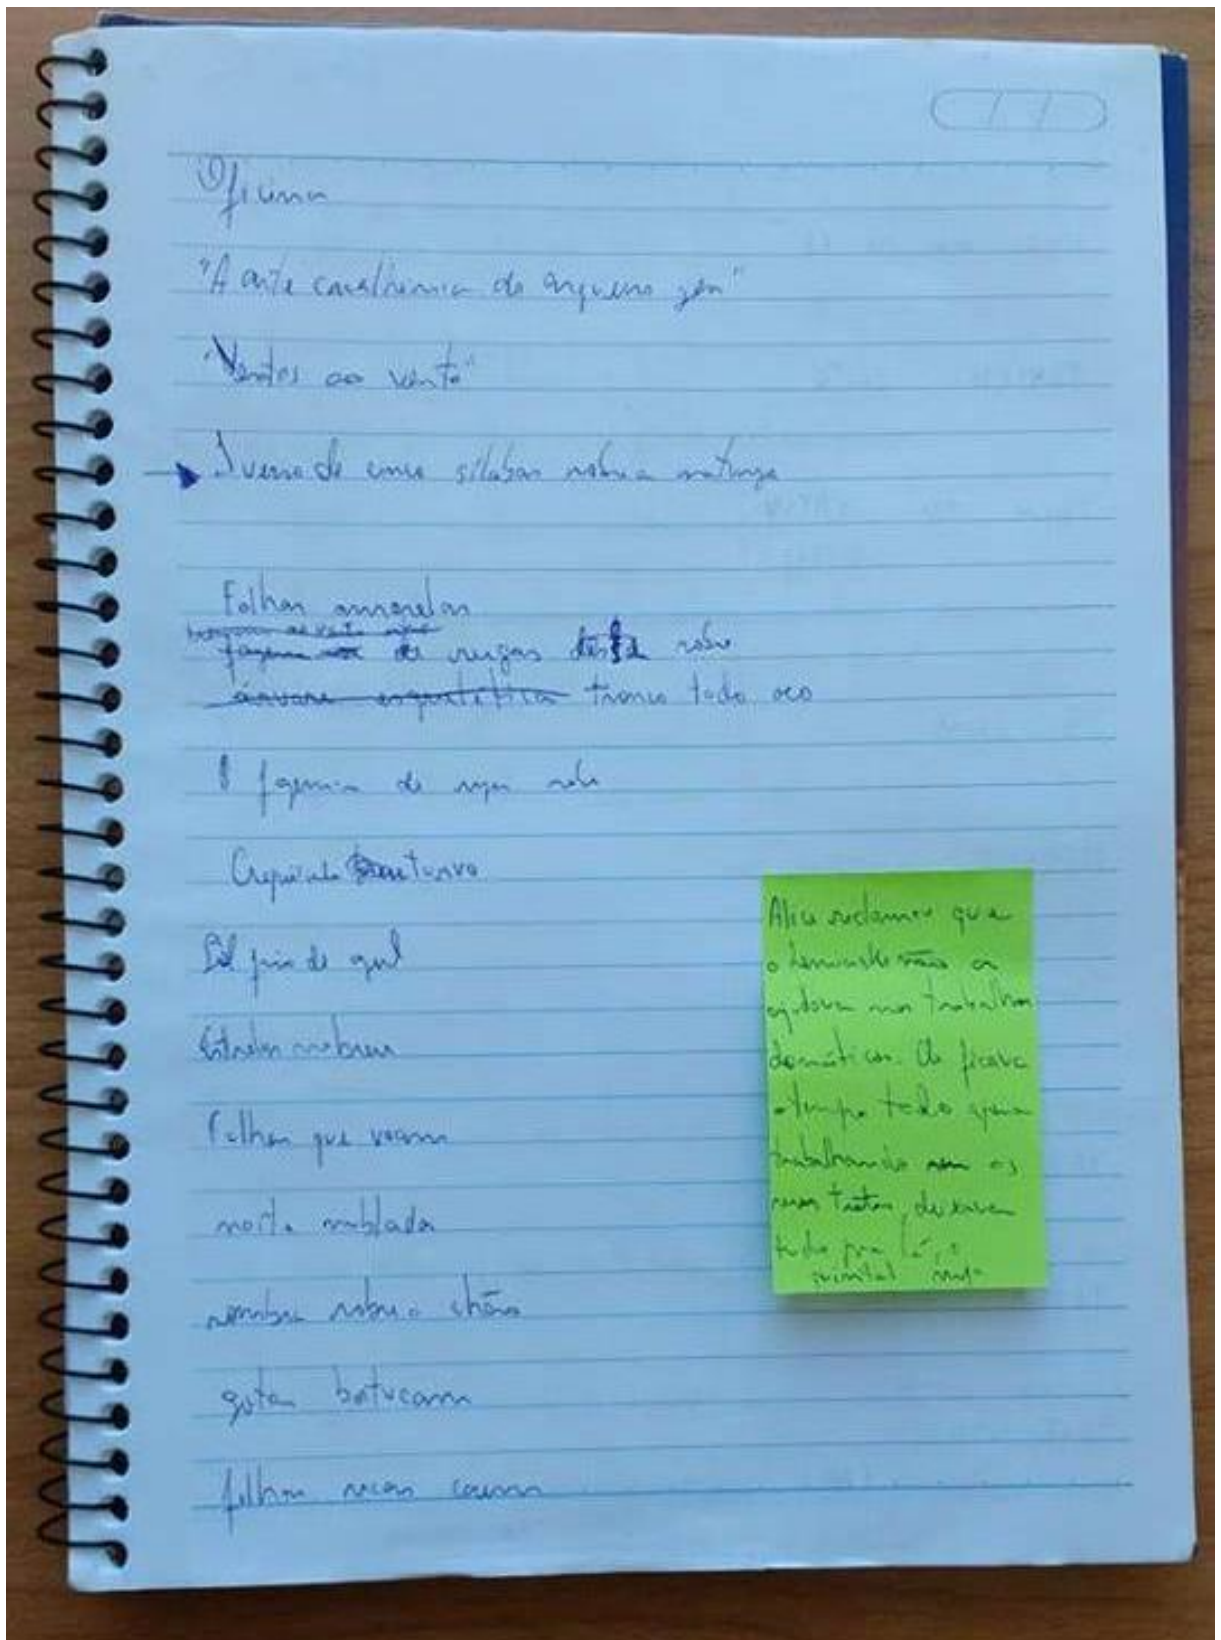 Oficina
"A arte cavalheiresca do arqueiro zen"
"Ventos ao vento"
1 verso de cinco sílabas sobre a natureza
Folhas amarelas
de rugas sobre
árvore esquelética tronco todo oco
de sobre
Crepúsculo turvo
Sol fim de
Estrelas sobre
Folhas que voam
noite nublada
sombra sobre o chão
gotas batucam
folhas secas caem
Alice reclamou que
o não a
ajudava nos trabalhos
domésticos. Ou ficava
o tempo todo
trabalhando os
seus textos, deixava
tudo pra lá, o
quintal sujo